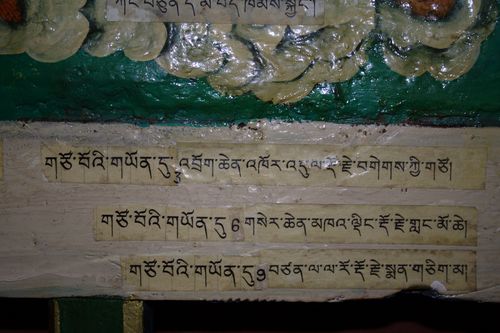 གཙོ་བོའི་གཡོན་དུ འབྲོག་ཆེན་འཁོར་འདུལ་རྡོ་རྗེ་བགེགས་ཀྱི་གཙོ།
གཙོ་བོའི་གཡོན་དུ 6 གསེར་ཆེན་མཁའ་ལྡིང་རྡོ་རྗེ་གླང་མོ་ཆེ།
གཙོ་བོའི་གཡོན་དུ 9 བཙན་ལ་ལ་རོ་རྡོ་རྗེ་སྨན་གཅིག་མ།